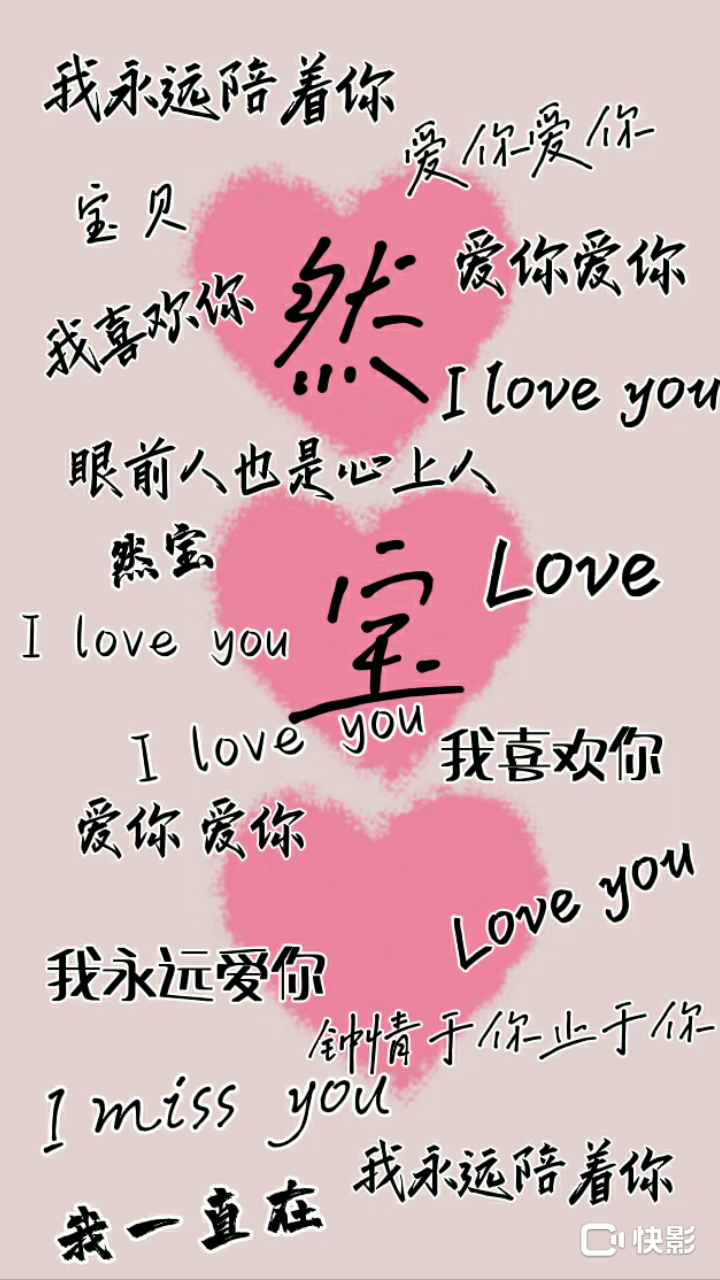 我永远陪着你
爱你爱你
宝贝
然
爱你爱你
我喜欢你
I love you
眼前人也是心上人
然宝
Love
宝
I love you
I love you
我喜欢你
爱你 爱你
Love you
我永远爱你
钟情于你止于你
I miss you
我永远陪着你
我一直在
快影